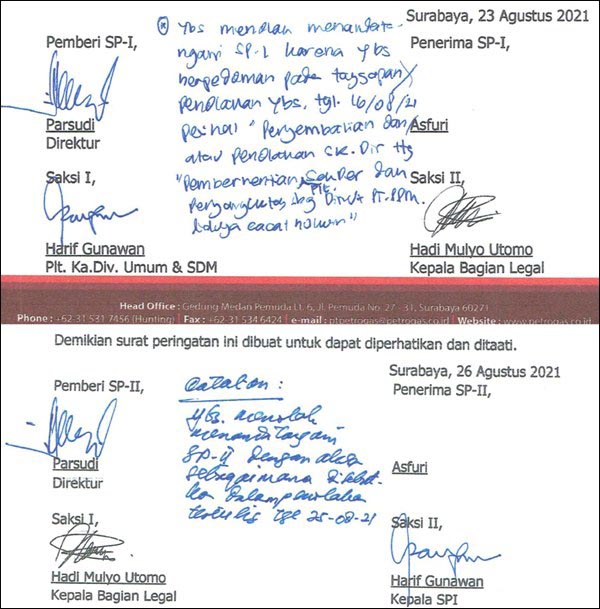 Surabaya, 23 Agustus 2021
Pemberi SP-I,
Penerima SP-I,
ybs menolak menandata-
ngani SP-1 karena ybs
berpedoman pada
penolakan ybs. tgl. 16/08/21
perihal "Pengembalian dan/
atau penolakan SK. Dir ttg
"Pemberhentian dan
Plt.
Pengangkatan sbg PT.
cacat hukum"
Parsudi
Direktur
Asfuri
Saksi I,
Saksi II,
Harif Gunawan
Plt. Ka.Div. Umum & SDM
Hadi Mulyo Utomo
Kepala Bagian Legal
Head Office : Gedung Medan Pemuda Lt. 6, Jl. Pemuda No. 27 - 31, Surabaya 60271
Phone : +62 31 531 7456 (Hunting) Fax : +62 31 534 6424 e-mail : ptpetrogas@petrogas.co.id Website : www.petrogas.co.id
Demikian surat peringatan ini dibuat untuk dapat diperhatikan dan ditaati.
Surabaya, 26 Agustus 2021
Pemberi SP-II,
Penerima SP-II,
Catatan :
ybs. menolak
menanditangani
SP-II dengan alasan
sebagaimana disebut-
kan dalam penolakan
tertulis tgl 25-08-21
Parsudi
Direktur
Asfuri
Saksi I,
Saksi II,
Hadi Mulyo Utomo
Kepala Bagian Legal
Harif Gunawan
Kepala SPI